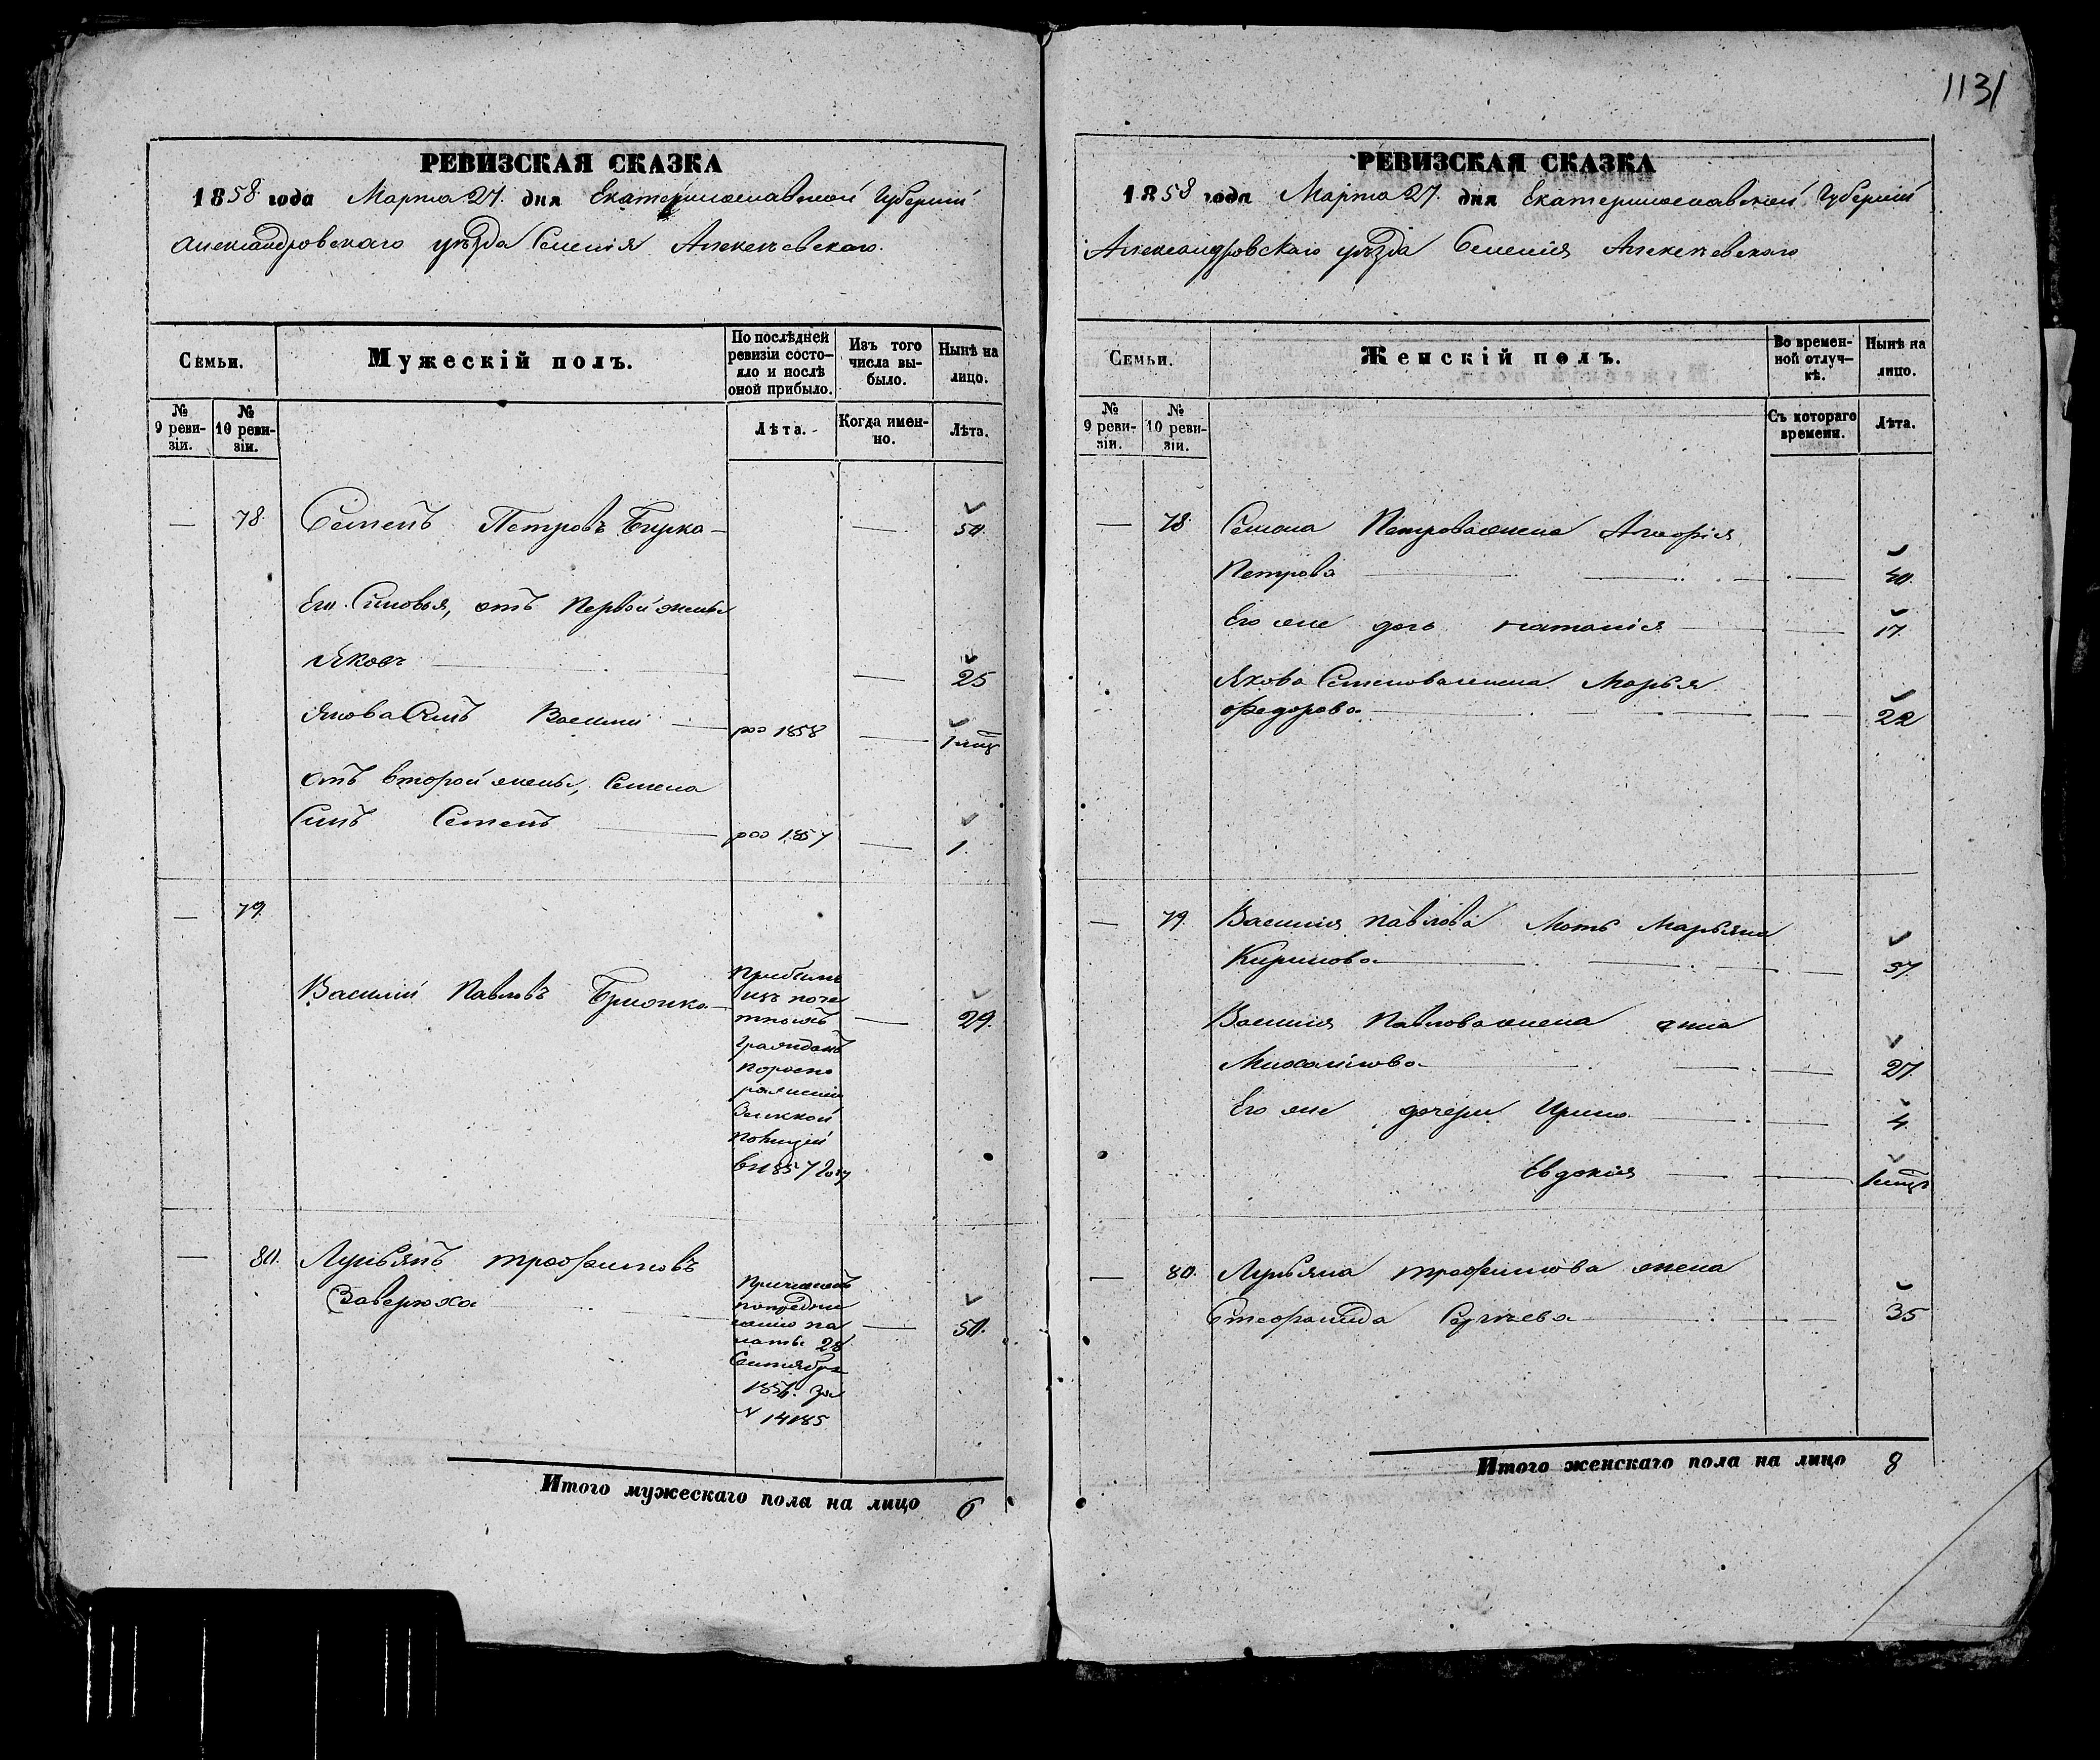 1131
РЕВИЗСКАЯ СКАЗКА
1858 года Марта 27. дня Екатеринославской Губерніи
Александровскаго уѣзда Селенія Алексѣевскаго.
Семьи.
Мужескій полъ.
По послѣдней ревизіи состояло и послѣ оной прибыло.
Изъ того числа выбыло.
Нынѣ на лицо.
№ 9 ревизіи.
№ 10 ревизіи.
Лѣта.
Когда именно.
Лѣта.
— 78. Семенъ Петровъ Бирка — — 50.
Его Сыновья, отъ Первой жены
Яковъ — — 25
Якова Сынъ Василий — ро 1858 — 1 мцъ
Отъ второй жены, Семена
Сынъ Семенъ — ро 1857 — 1.
— 79.
Василий Павловъ — 29.
Прибылъ
изъ поче
тныхъ
Гражданъ
По распо
ряженію
Полиціи
въ 1857 году
— 80. Лукьянъ Трофимовъ
Заверюха — 50.
Причисленъ
28
Сентября
185 за
№ 14185
Итого мужескаго пола на лицо 6
РЕВИЗСКАЯ СКАЗКА
1858 года Марта 27. дня Екатеринославской Губерніи
Александровскаго уѣзда Селенія Алексѣевскаго
Семьи.
Женскій полъ.
Во временной отлучкѣ.
Нынѣ на лицо.
№ 9 ревизіи.
№ 10 ревизіи.
Съ котораго времени.
Лѣта.
— 78. Семена Петрова жена
Петрова — — 40.
Его же дочь Наталія — — 17.
Якова Семенова жена Марья
Федорова — — 22
— 79. Василия Павлова Мать Марьяна
Кирилова — — 57.
Василия Павлова жена Анна
Михайлова — — 27.
Его же дочери Ирина — — 4
Евдокия — — 1 мцъ
— 80. Лукьяна Трофимова жена
Стефанида Сергѣева — — 35
Итого женскаго пола на лицо 8